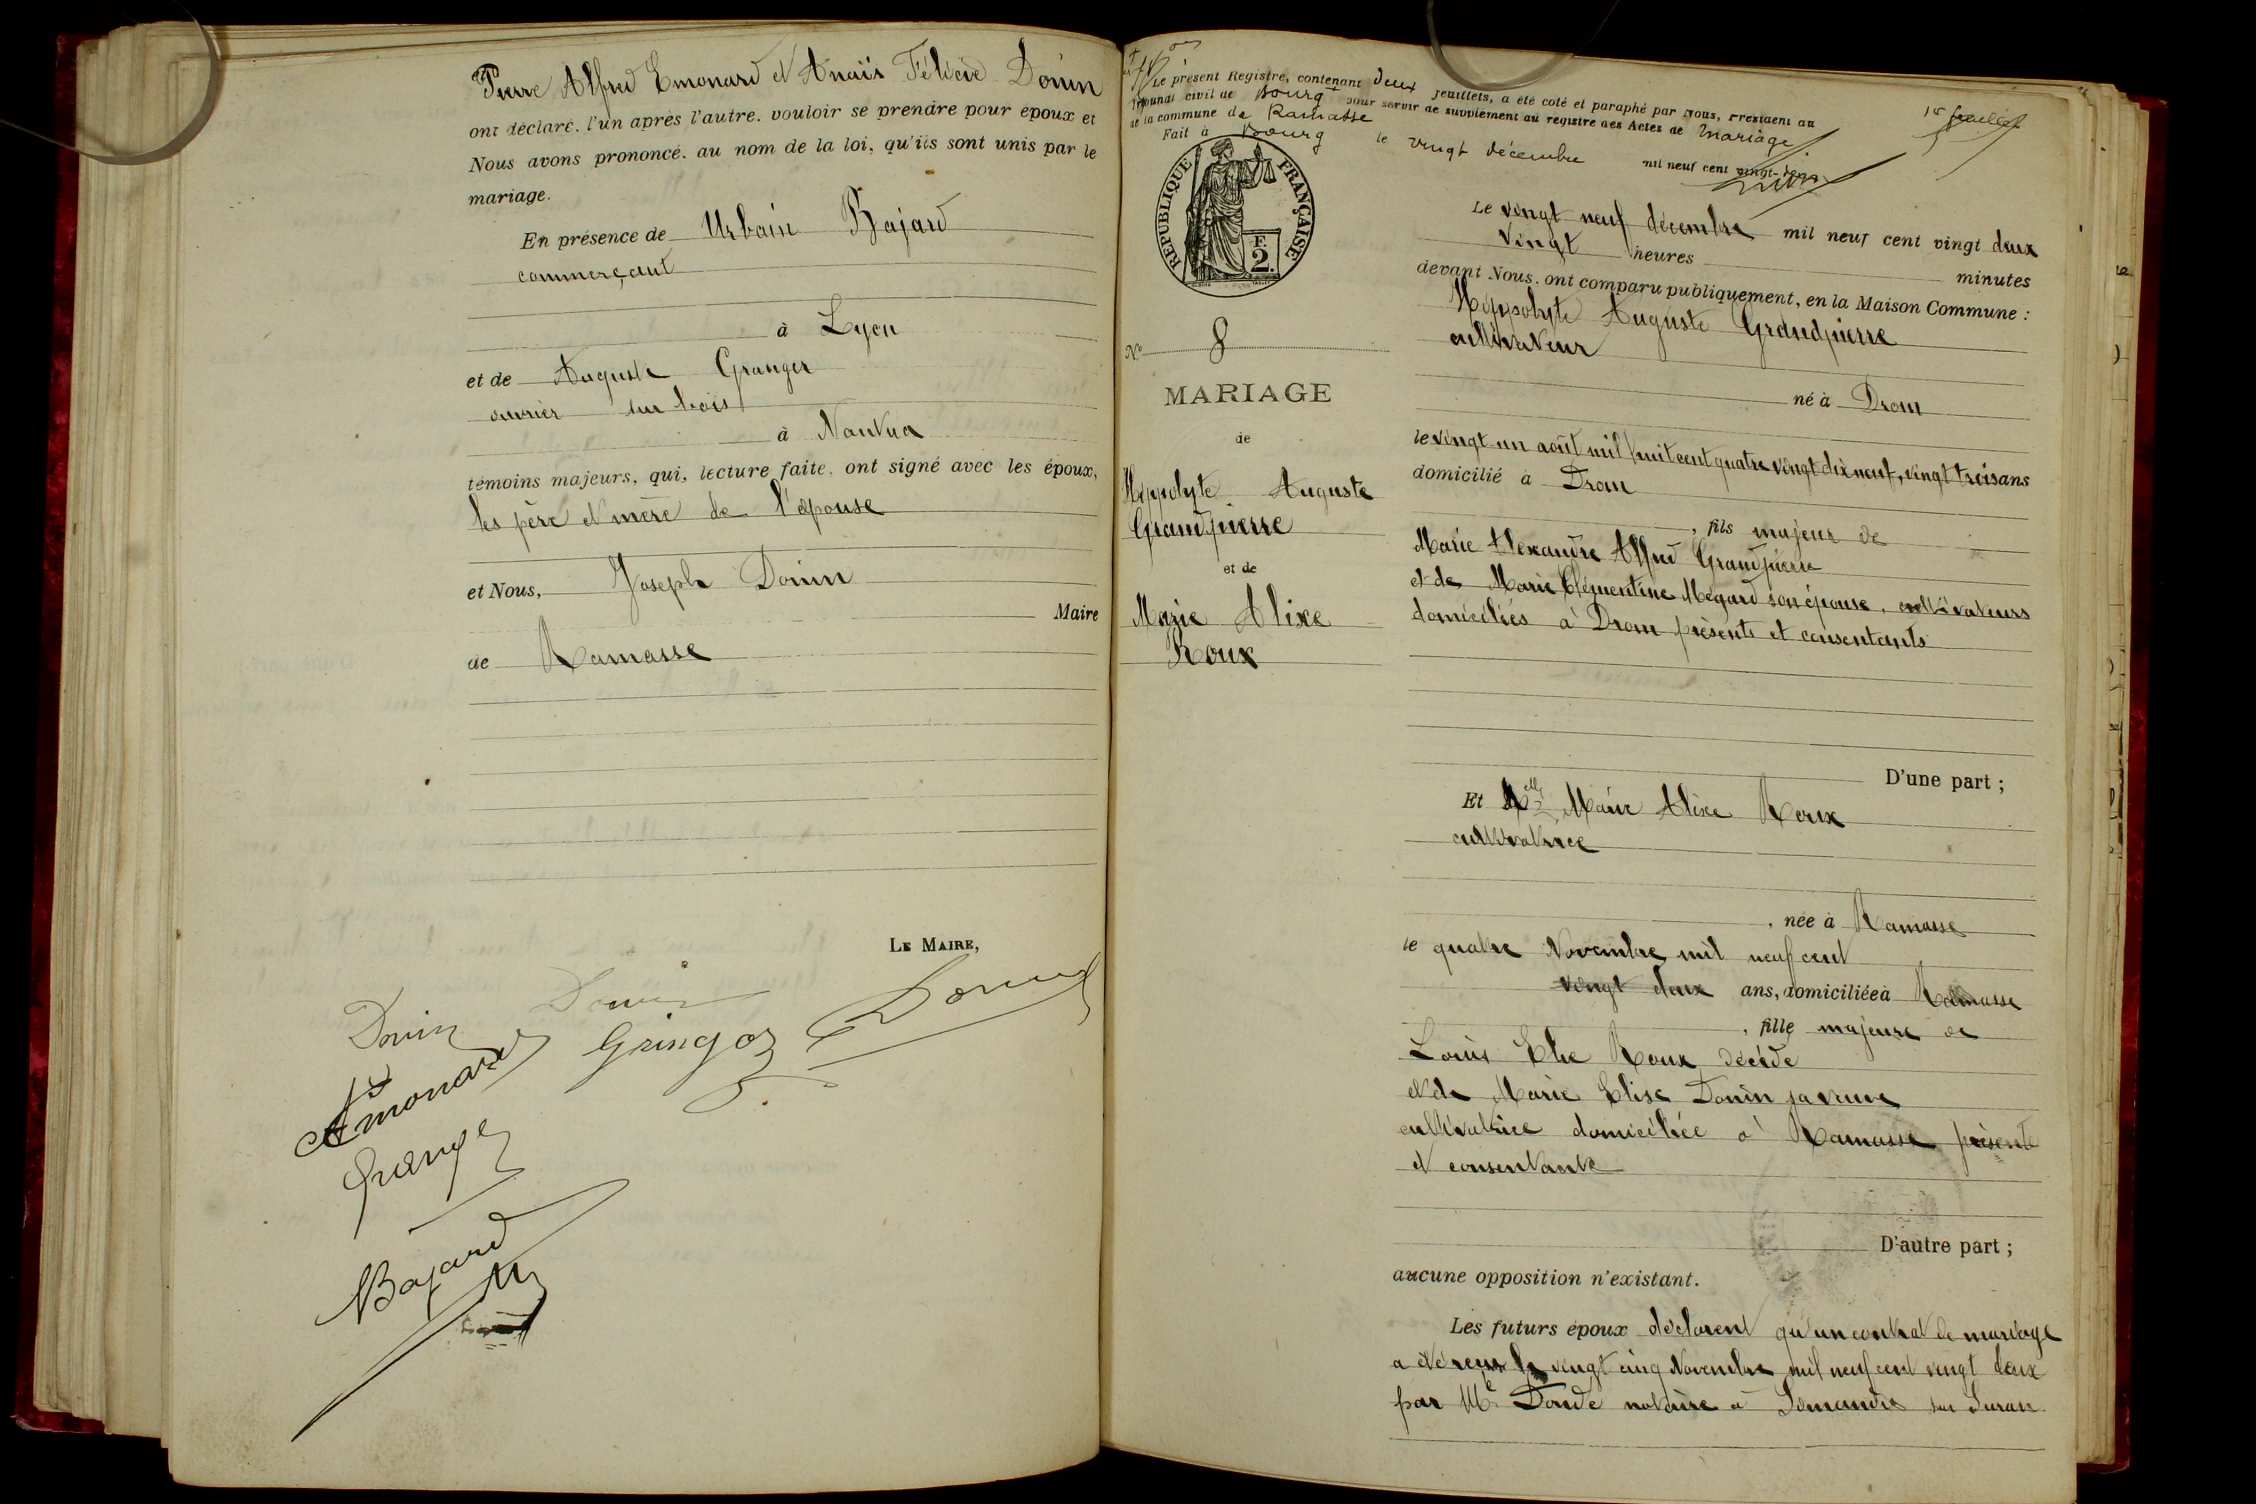 Pierre Alfred Emonard et Anaïs Félicie Donin
ont déclaré, l'un après l'autre, vouloir se prendre pour époux et
Nous avons prononcé, au nom de la loi, qu'ils sont unis par le
mariage.
En présence de Urbain Bajard
commerçant
à Lyon
et de Auguste Granger
ouvrier sur bois
à Nantua
témoins majeurs, qui, lecture faite, ont signé avec les époux,
les père et mère de l'épouse
et Nous, Joseph Donin
Maire
de Ramasse
LE MAIRE,
Donin Donin Donin
Gringoz
Emonard
Granger
Bajard
Le présent Registre, contenant deux feuillets, a été coté et paraphé par Nous, Président du
Tribunal civil de Bourg pour servir de supplément au registre des Actes de Mariage
de la commune de Ramasse
Fait à Bourg le vingt décembre mil neuf cent vingt-deux
1er feuillet
RÉPUBLIQUE FRANÇAISE
F.
2.
No 8
MARIAGE
de
Hippolyte Auguste
Grandpierre
et de
Marie Alixe
Roux
Le vingt neuf décembre mil neuf cent vingt deux
vingt heures minutes
devant Nous, ont comparu publiquement, en la Maison Commune :
Hippolyte Auguste Grandpierre
cultivateur
né à Drom
le vingt-un août mil huit cent quatre vingt dix neuf, vingt trois ans
domicilié à Drom
, fils majeur de
Marie Alexandre Alfred Grandpierre
et de Marie Clémentine Mégard son épouse, cultivateurs
domiciliés à Drom présents et consentants
D'une part ;
Et Melle Marie Alixe Roux
cultivatrice
, née à Ramasse
le quatre Novembre mil neuf cent
vingt deux ans, domiciliée à Ramasse
, fille majeure de
Louis Elie Roux décédé
et de Marie Elise Donin sa veuve
cultivatrice domiciliée à Ramasse présente
et consentante
D'autre part ;
aucune opposition n'existant.
Les futurs époux déclarent qu'un contrat de mariage
a été reçu le vingt cinq Novembre mil neuf cent vingt deux
par Me Doude notaire à Simandre sur Suran